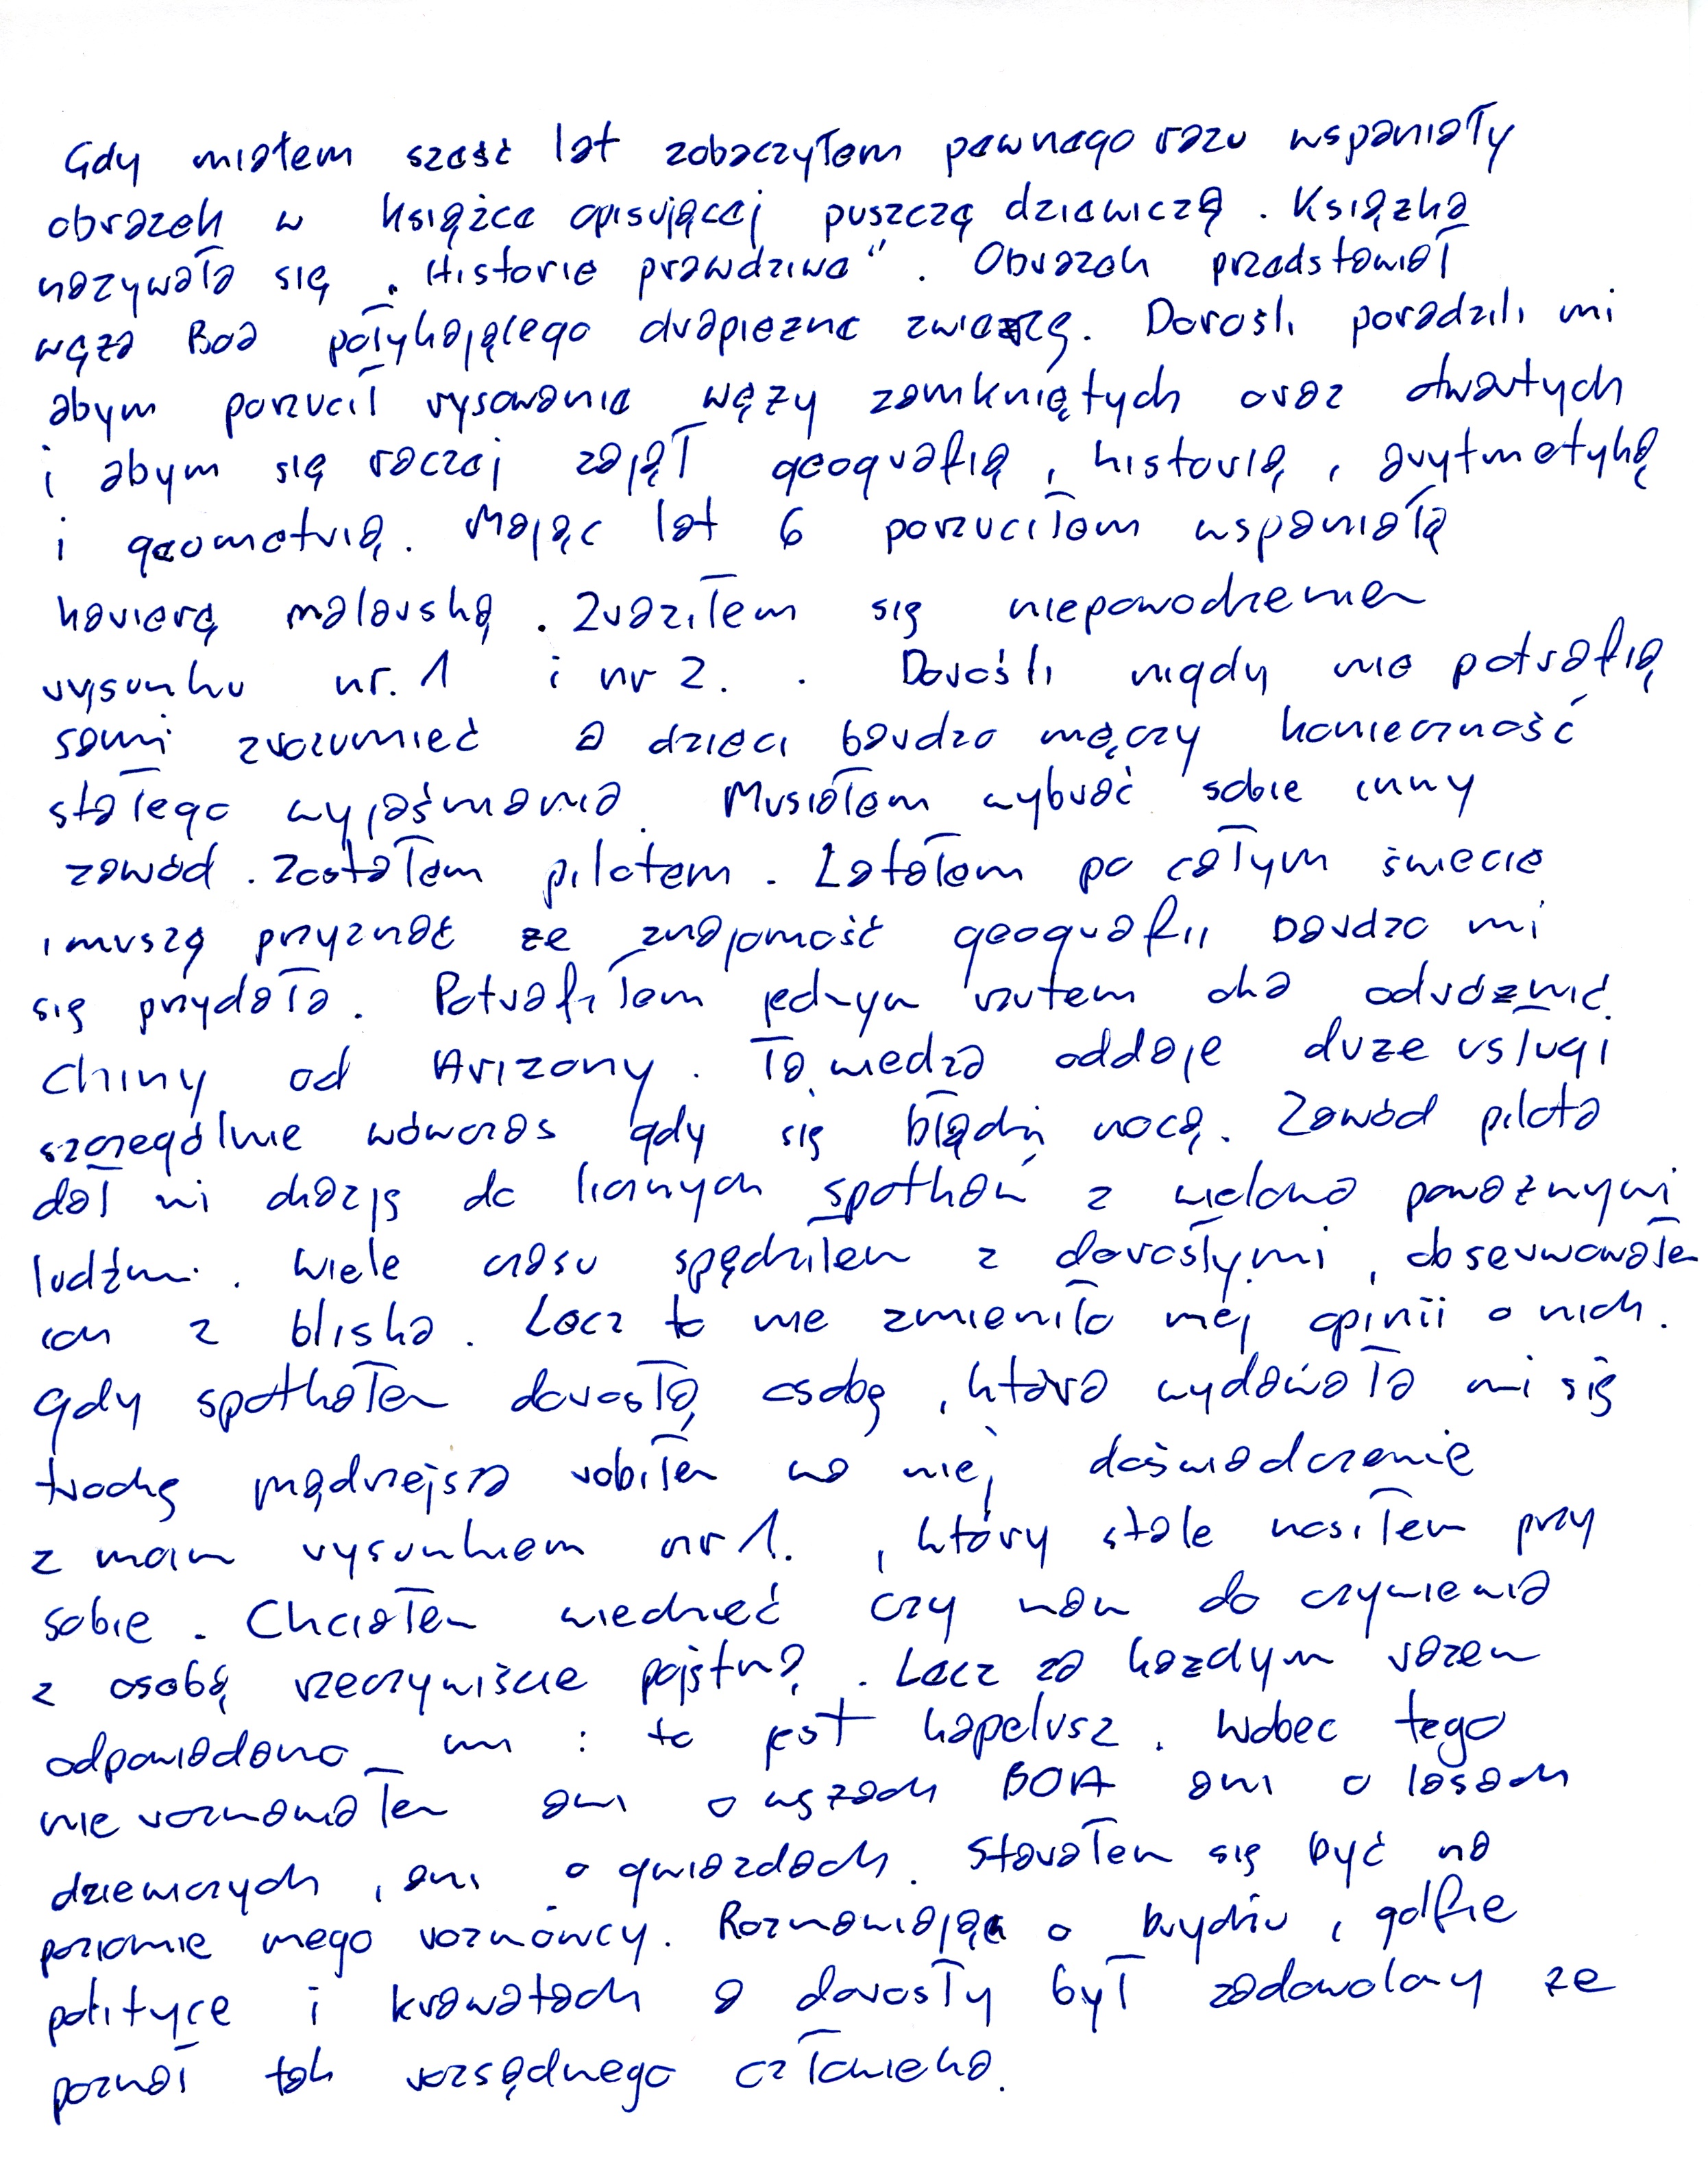 Gdy miałem sześć lat zobaczyłem pewnego razu wspaniały
obrazek w książce opisującej puszczę dziewiczą. Książka
nazywała się "Historie prawdziwe". Obrazek przedstawiał
węża Boa połykającego drapieżne zwierzę. Dorośli poradzili mi
abym porzucił rysowanie węży zamkniętych oraz otwartych
i abym się raczej zajął geografią, historią, arytmetyką
i geometrią. Mając lat 6 porzuciłem wspaniałą
karierę malarską. Zraziłem się niepowodzeniem
rysunku nr. 1 i nr 2. . Dorośli nigdy nie potrafią
sami zrozumieć a dzieci bardzo męczy konieczność
stałego wyjaśniania. Musiałem wybrać sobie inny
zawód. Zostałem pilotem. Latałem po całym świecie
i muszę przyznać że znajomość geografii bardzo mi
się przydała. Potrafiłem jednym rzutem oka odróżnić
Chiny od Arizony. Ta wiedza oddaje duże usługi
szczególnie wówczas gdy się błądzi nocą. Zawód pilota
dał mi okazję do licznych spotkań z wieloma poważnymi
ludźmi. Wiele czasu spędziłem z dorosłymi, obserwowałem
ich z bliska. Lecz to nie zmieniło mej opinii o nich.
Gdy spotkałem dorosłą osobę, która wydawała mi się
trochę mądrzejsza robiłem na niej doświadczenie
z moim rysunkiem nr 1. , który stale nosiłem przy
sobie. Chciałem wiedzieć czy mam do czynienia
z osobą rzeczywiście pojętną. Lecz za każdym razem
odpowiadano mi : to jest kapelusz. Wobec tego
nie rozmawiałem ani o wężach BOA ani o lasach
dziewiczych, ani o gwiazdach. Starałem się być na
poziomie mego rozmówcy. Rozmawiając o brydżu, golfie
polityce i krawatach a dorosły był zadowolony że
poznał tak rozsądnego człowieka.